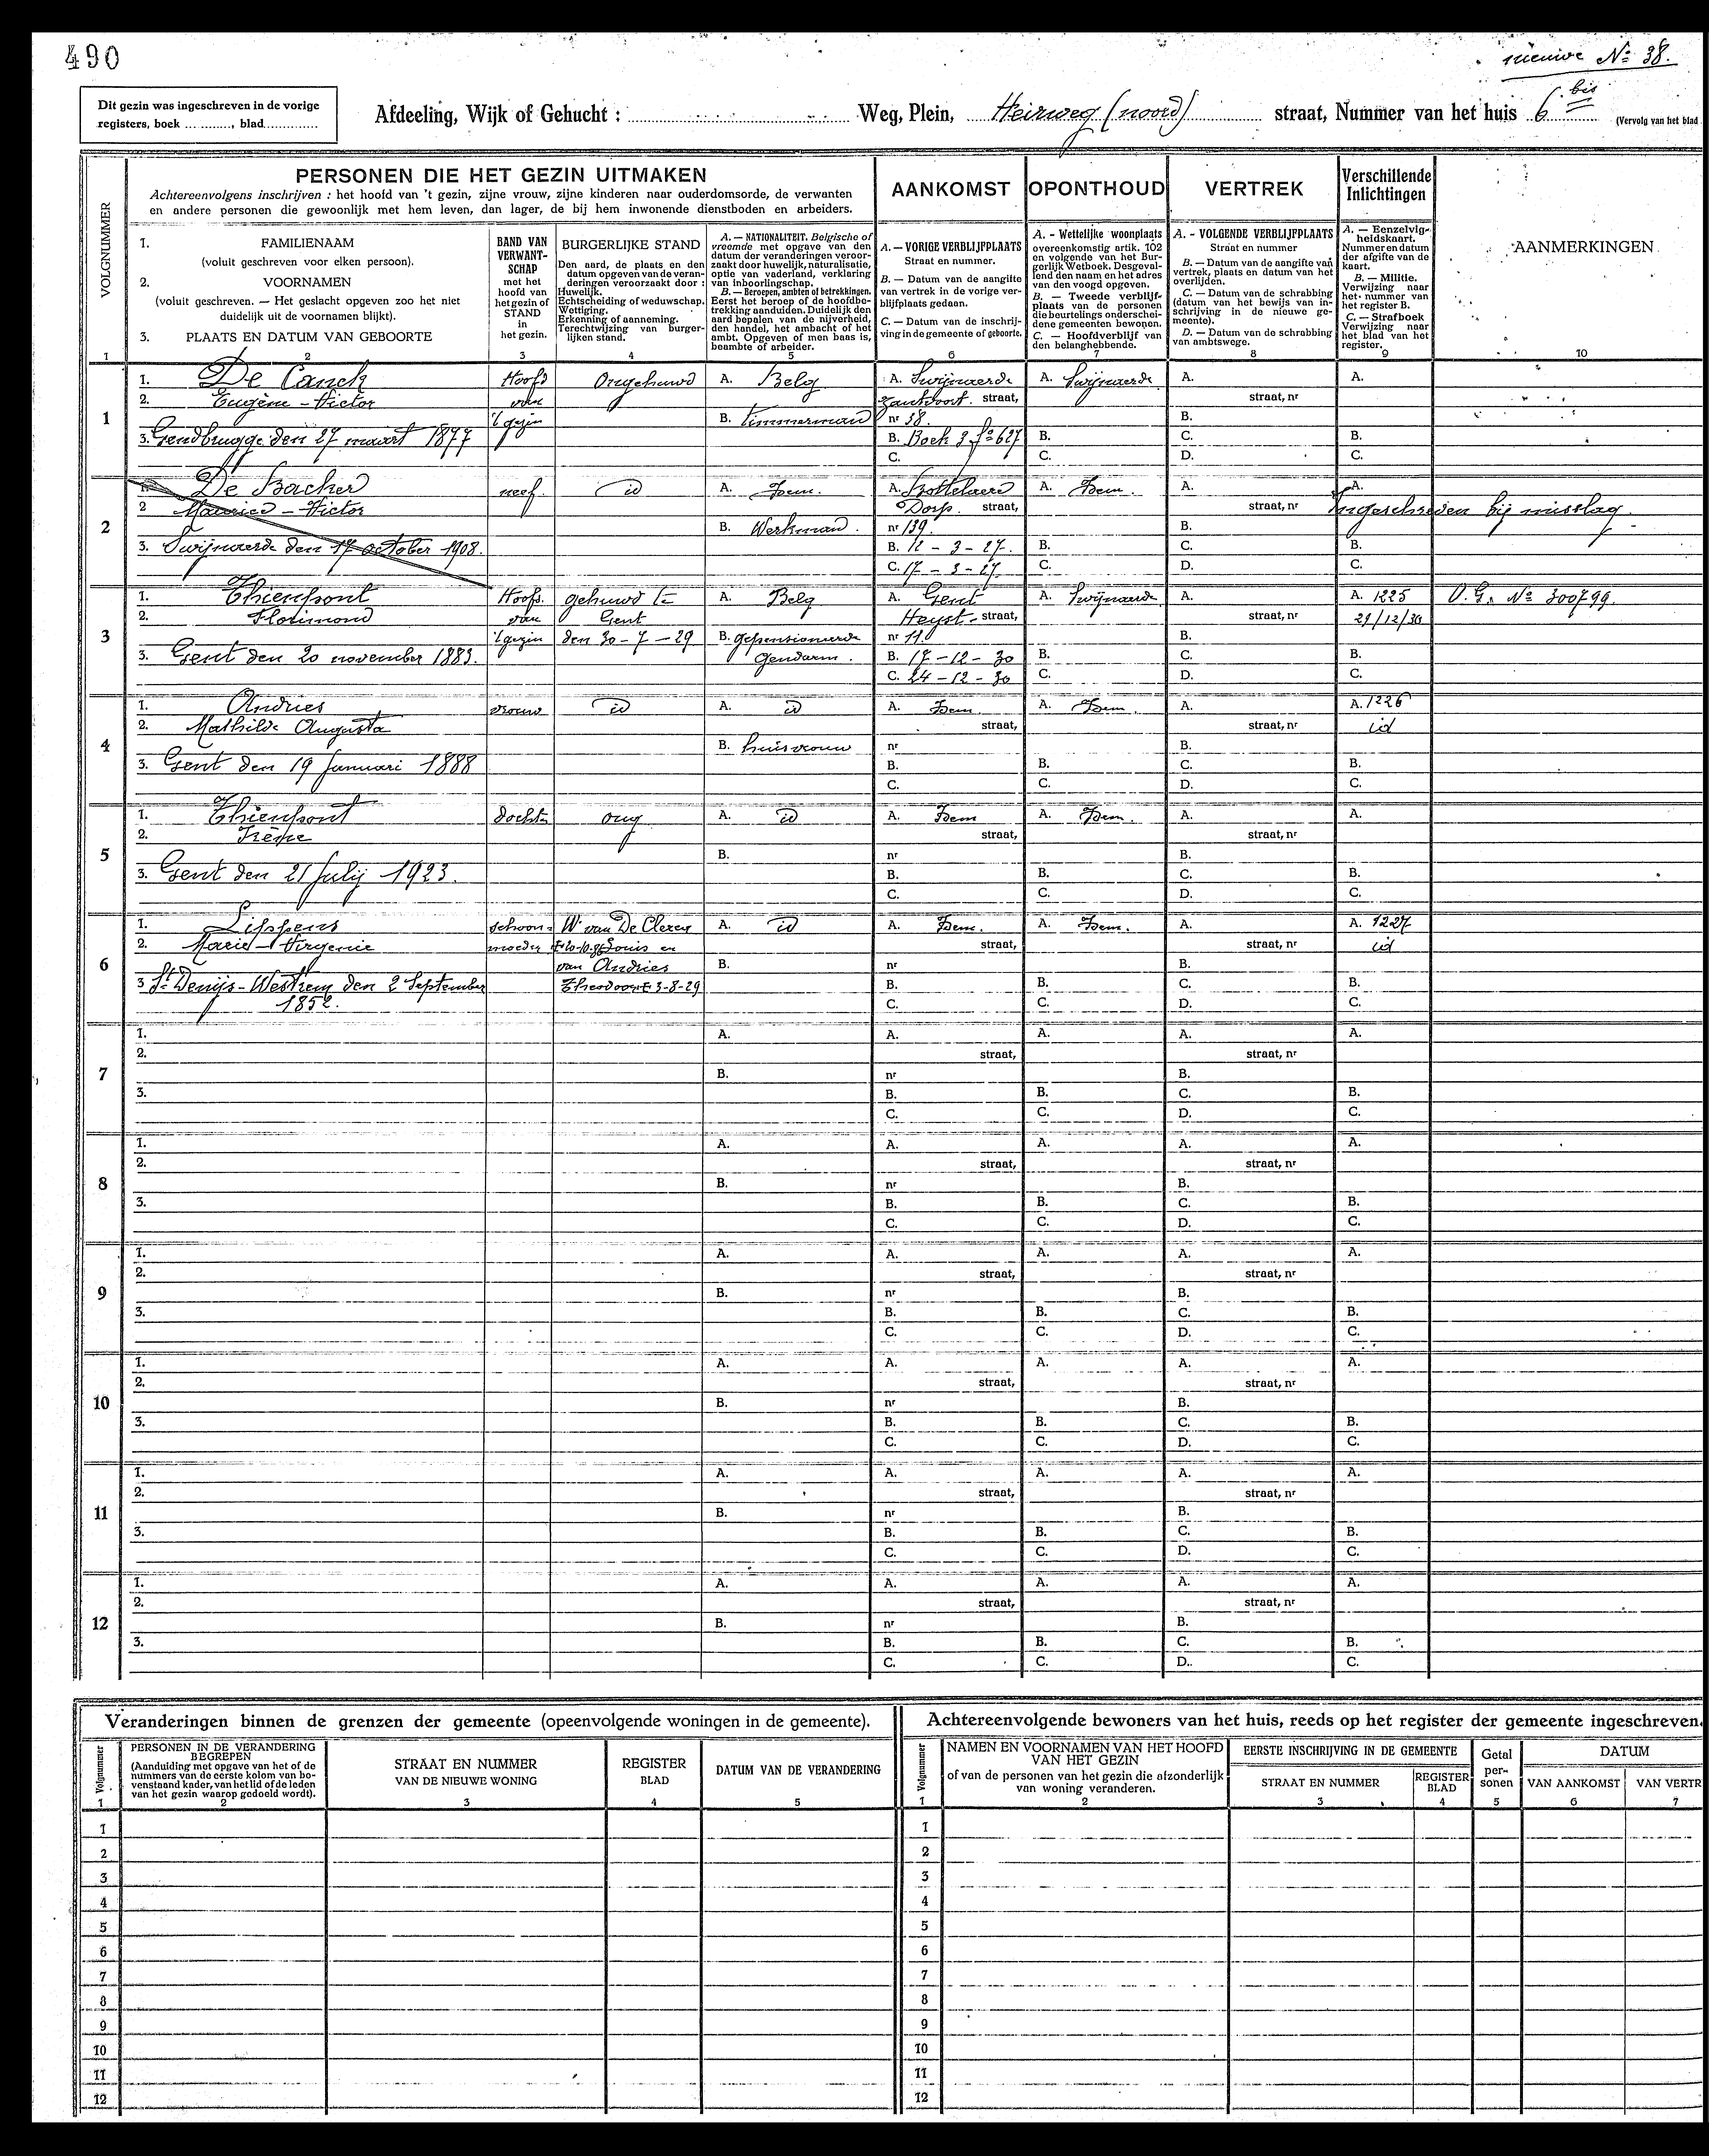 490
nieuwe No 38.
Dit gezin was ingeschreven in de vorige
registers, boek ..........., blad..............
Afdeeling, Wijk of Gehucht : Weg, Plein, Heirweg (noord) straat, Nummer van het huis 6 bis (Vervolg van het blad
PERSONEN DIE HET GEZIN UITMAKEN
Achtereenvolgens inschrijven : het hoofd van 't gezin, zijne vrouw, zijne kinderen naar ouderdomsorde, de verwanten
en andere personen die gewoonlijk met hem leven, dan lager, de bij hem inwonende dienstboden en arbeiders.
AANKOMST
OPONTHOUD
VERTREK
Verschillende
Inlichtingen
VOLGNUMMER
1
1. FAMILIENAAM
(voluit geschreven voor elken persoon).
2. VOORNAMEN
(voluit geschreven. — Het geslacht opgeven zoo het niet
duidelijk uit de voornamen blijkt).
3. PLAATS EN DATUM VAN GEBOORTE
2
BAND VAN
VERWANT-
SCHAP
met het
hoofd van
het gezin of
STAND
in
het gezin.
3
BURGERLIJKE STAND
Den aard, de plaats en den
datum opgeven van de veran-
deringen veroorzaakt door :
Huwelijk.
Echtscheiding of weduwschap.
Wettiging.
Erkenning of aanneming.
Terechtwijzing van burger-
lijken stand.
4
A. — NATIONALITEIT. Belgische of
vreemde met opgave van den
datum der veranderingen veroor-
zaakt door huwelijk, naturalisatie,
optie van vaderland, verklaring
van inboorlingschap.
B. — Beroepen, ambten of betrekkingen.
Eerst het beroep of de hoofdbe-
trekking aanduiden. Duidelijk den
aard bepalen van de nijverheid,
den handel, het ambacht of het
ambt. Opgeven of men baas is,
beambte of arbeider.
5
A. — VORIGE VERBLIJFPLAATS
Straat en nummer.
B. — Datum van de aangifte
van vertrek in de vorige ver-
blijfplaats gedaan.
C. — Datum van de inschrij-
ving in de gemeente of geboorte.
6
A. - Wettelijke woonplaats
overeenkomstig artik. 102
en volgende van het Bur-
gerlijk Wetboek. Desgeval-
lend den naam en het adres
van den voogd opgeven.
B. — Tweede verblijf-
plaats van de personen
die beurtelings onderschei-
dene gemeenten bewonen.
C. — Hoofdverblijf van
den belanghebbende.
7
A. - VOLGENDE VERBLIJFPLAATS
Straat en nummer
B. — Datum van de aangifte van
vertrek, plaats en datum van het
overlijden.
C. — Datum van de schrabbing
(datum van het bewijs van in-
schrijving in de nieuwe ge-
meente).
D. — Datum van de schrabbing
van ambtswege.
8
A. — Eenzelvig-
heidskaart.
Nummer en datum
der afgifte van de
kaart.
B. — Militie.
Verwijzing naar
het nummer van
het register B.
C. — Strafboek
Verwijzing naar
het blad van het
register.
9
AANMERKINGEN
10
1
1. De Canck Hoofd Ongehuwd A. Belg A. Swijnaerde A. Swijnaerde A. A.
2. Eugène - Victor van Zandvoort straat, straat, nr
't gezin B. timmerman nr 38. B.
3. Gendbrugge den 27 maart 1877 B. Boek 3 fo 627 B. C. B.
C. C. D. C.
2
1. De Backer neef. id A. Idem. A. Bottelaere A. Idem. A. A.
2 Maurice - Victor Dorp. straat, straat, nr Ingeschreven bij misslag.
B. Werkman. nr 139. B.
3. Swijnaerde den 17 october 1908. B. 12 - 3 - 27. B. C. B.
C. 17 - 3 - 27. C. D. C.
3
1. Thienpont Hoofd. gehuwd te A. Belg A. Gent A. Swijnaerde A. A. 1225 O. G. No 300799.
2. Florimond van Gent Heyst - straat, straat, nr 29/12/30
't gezin den 30 - 7 - 29 B. gepensionneerde nr 11. B.
3. Gent den 20 november 1883. Gendarm. B. 17 - 12 - 30 B. C. B.
C. 24 - 12 - 30 C. D. C.
4
1. Andries vrouw id A. id A. Idem. A. Idem. A. A. 1226
2. Mathilde Augusta straat, straat, nr id
B. huisvrouw nr B.
3. Gent den 19 Januari 1888 B. B. C. B.
C. C. D. C.
5
1. Thienpont dochter ong A. id A. Idem A. Idem. A. A.
2. Irène straat, straat, nr
B. nr B.
3. Gent den 21 Julij 1923. B. B. C. B.
C. C. D. C.
6
1. Lippens schoon= W. van De Clercq A. id A. Idem. A. Idem. A. A. 1227
2. Marie - Virgenie moeder Louis en straat, straat, nr id
van Andries B. nr B.
3 St Denijs-Westrem den 2 September Theodoor 3-8-29 B. B. C. B.
1852. C. C. D. C.
7
1. A. A. A. A. A.
2. straat, straat, nr
B. nr B.
3. B. B. C. B.
C. C. D. C.
8
1. A. A. A. A. A.
2. straat, straat, nr
B. nr B.
3. B. B. C. B.
C. C. D. C.
9
1. A. A. A. A. A.
2. straat, straat, nr
B. nr B.
3. B. B. C. B.
C. C. D. C.
10
1. A. A. A. A. A.
2. straat, straat, nr
B. nr B.
3. B. B. C. B.
C. C. D. C.
11
1. A. A. A. A. A.
2. straat, straat, nr
B. nr B.
3. B. B. C. B.
C. C. D. C.
12
1. A. A. A. A. A.
2. straat, straat, nr
B. nr B.
3. B. B. C. B.
C. C. D. C.
Veranderingen binnen de grenzen der gemeente (opeenvolgende woningen in de gemeente).
Volgnummer
1
PERSONEN IN DE VERANDERING
BEGREPEN
(Aanduiding met opgave van het of de
nummers van de eerste kolom van bo-
venstaand kader, van het lid of de leden
van het gezin waarop gedoeld wordt).
2
STRAAT EN NUMMER
VAN DE NIEUWE WONING
3
REGISTER
BLAD
4
DATUM VAN DE VERANDERING
5
1
2
3
4
5
6
7
8
9
10
11
12
Achtereenvolgende bewoners van het huis, reeds op het register der gemeente ingeschreven.
Volgnummer
1
NAMEN EN VOORNAMEN VAN HET HOOFD
VAN HET GEZIN
of van de personen van het gezin die afzonderlijk
van woning veranderen.
2
EERSTE INSCHRIJVING IN DE GEMEENTE
STRAAT EN NUMMER
3
REGISTER
BLAD
4
Getal
per-
sonen
5
DATUM
VAN AANKOMST
6
VAN VERTR
7
1
2
3
4
5
6
7
8
9
10
11
12